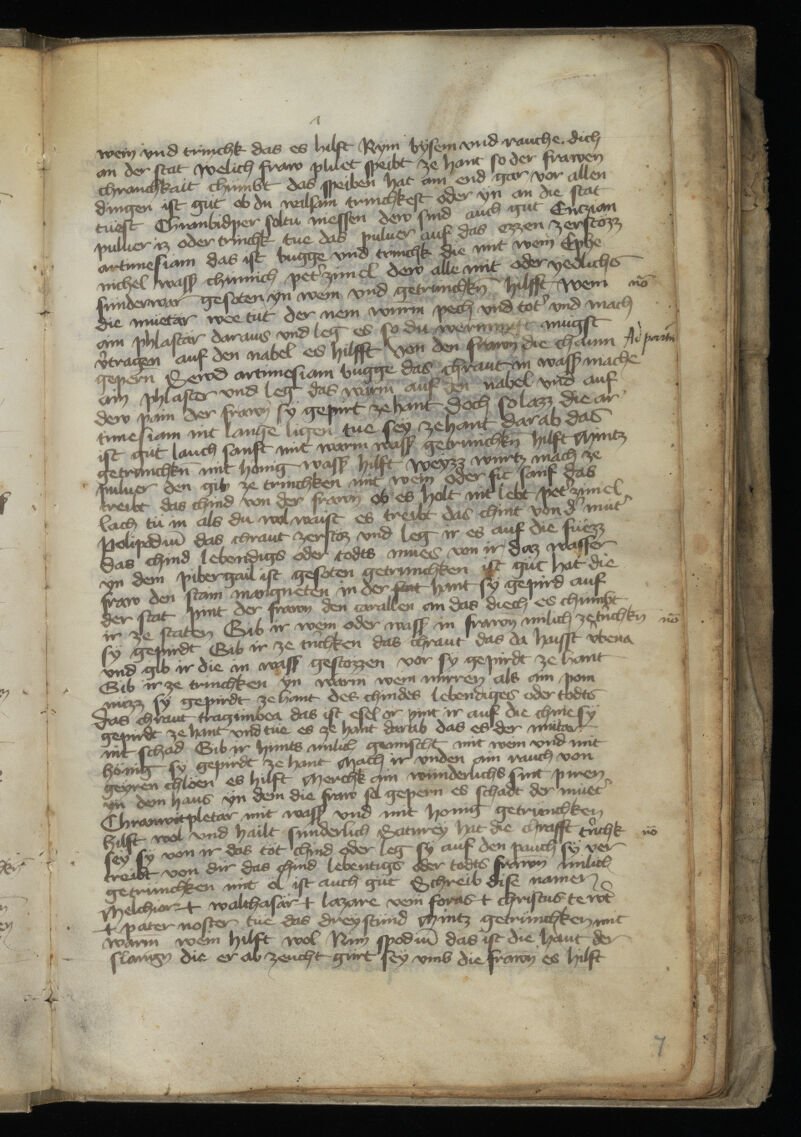 wein vnd trinchk das es hilft Nym bysem vnd rauche dich
an der stat Welich fraw pluet speibt ze hant so der frawen
chranchkait chumbt das speiben hat am end gar vor allen
dingen ist gut ob du walsam trinchkest oder yn an die stat
tuest Chranbidper soltu niessen dew sind auch gut Enczian
puluer iz oder trinchk tue das puluer auf das ezzen zerstozz
artimesiam das ist bugge vnd trinchk die mit wein Ephe
michel wasser chumich petersimel dew alle mit oder yedlichs
sunderwar gesoten yn wein vnd getrunchkn hilfft Wem nō
die mueter wee tut der nem wurm pech vnd toter vnd mach
ain phlaster daraus vnd leg es so du wermist mugst
vertragen auf den nabel es hilfft Von den frawn die chaum Ad partum
gepern Sewd artimesiam bugge das chraut in wasser mache
ain phlaster vnd leg das warm auf den nabel vnd auf
dew pain der frawn sy gepirt ze hant doch so lazz die ar
timesiam nit lange ligen tue sey ze hant darab das
ist gut lauch sanft mit warm wasser getrunchkn hilft Mintz
getrunchkn mit honig wasser hilft weyzz wurtz mach ze
puluer den gib ze trinchken mit wein oder sit sanf das
treibt das chind von der frawn ob es holt nit lebt petersimel
lach tu in als du wol waist es treibt das chint von der muter
Polipodium das chraut zerstoz vnd leg ir es auf die fuezz
das chind lebendigs oder todts mues von ir daz wasser
yn dem pibergail ist gesoten getrunchken ist gut hat die
fraw den stain mangneten in der hant sy gepird auf
der stat pint der frawn den carallen an das diech es chumbt
ir ze staten Gib ir wein oder wasser in frawn milich ze trinchkn nō
sy gepirdt Gib ir ze trinchken das chraut das da haisst vbena
vnd gib ir die in wasser gestozzen vor sy gepirdt ze hant
Gib ir ze trinchken yn warm wein mirren als ain pon
mazz sy gepirdt ze hant des chindes lebentiges oder todts
das chraut tragimbea das ist esel or pint ir auf die chnie sy
gepirdt ze hant vnd tue es ze hant darab das es der muter
nit schad Gib ir hunts milich gemischt mit wein vnd mit
honig sy gepirdt ze hant Mach ir vnden ain rauch von
geyren chloen es hilft Merchk ain wunderlichs sint piren
yn dem haus yn dem die fraw sol gepern es schadt der mueter
Chranwitpleter mit wasser vnd mit honig getrunchken
hilft wol vnd hailt sunderlich Saturey hat die chrafft trinchk nō
sey sy von ir das tot chind oder leg sy auf den pauch sy ver
treibt von dir das chind lebentigs oder todts frawn milich
getrunchken mit ol ist auch gut Schreib dise namen
Melchior + walthasar + lazare veni foras + christus te voc
+ pater noster tue das dreystund Mintz getrunchken mit
warm wein hilft wol Nim spodium das ist die haut der
slangn die er ab zeucht gurt sey vmb die frawn es hilft
7